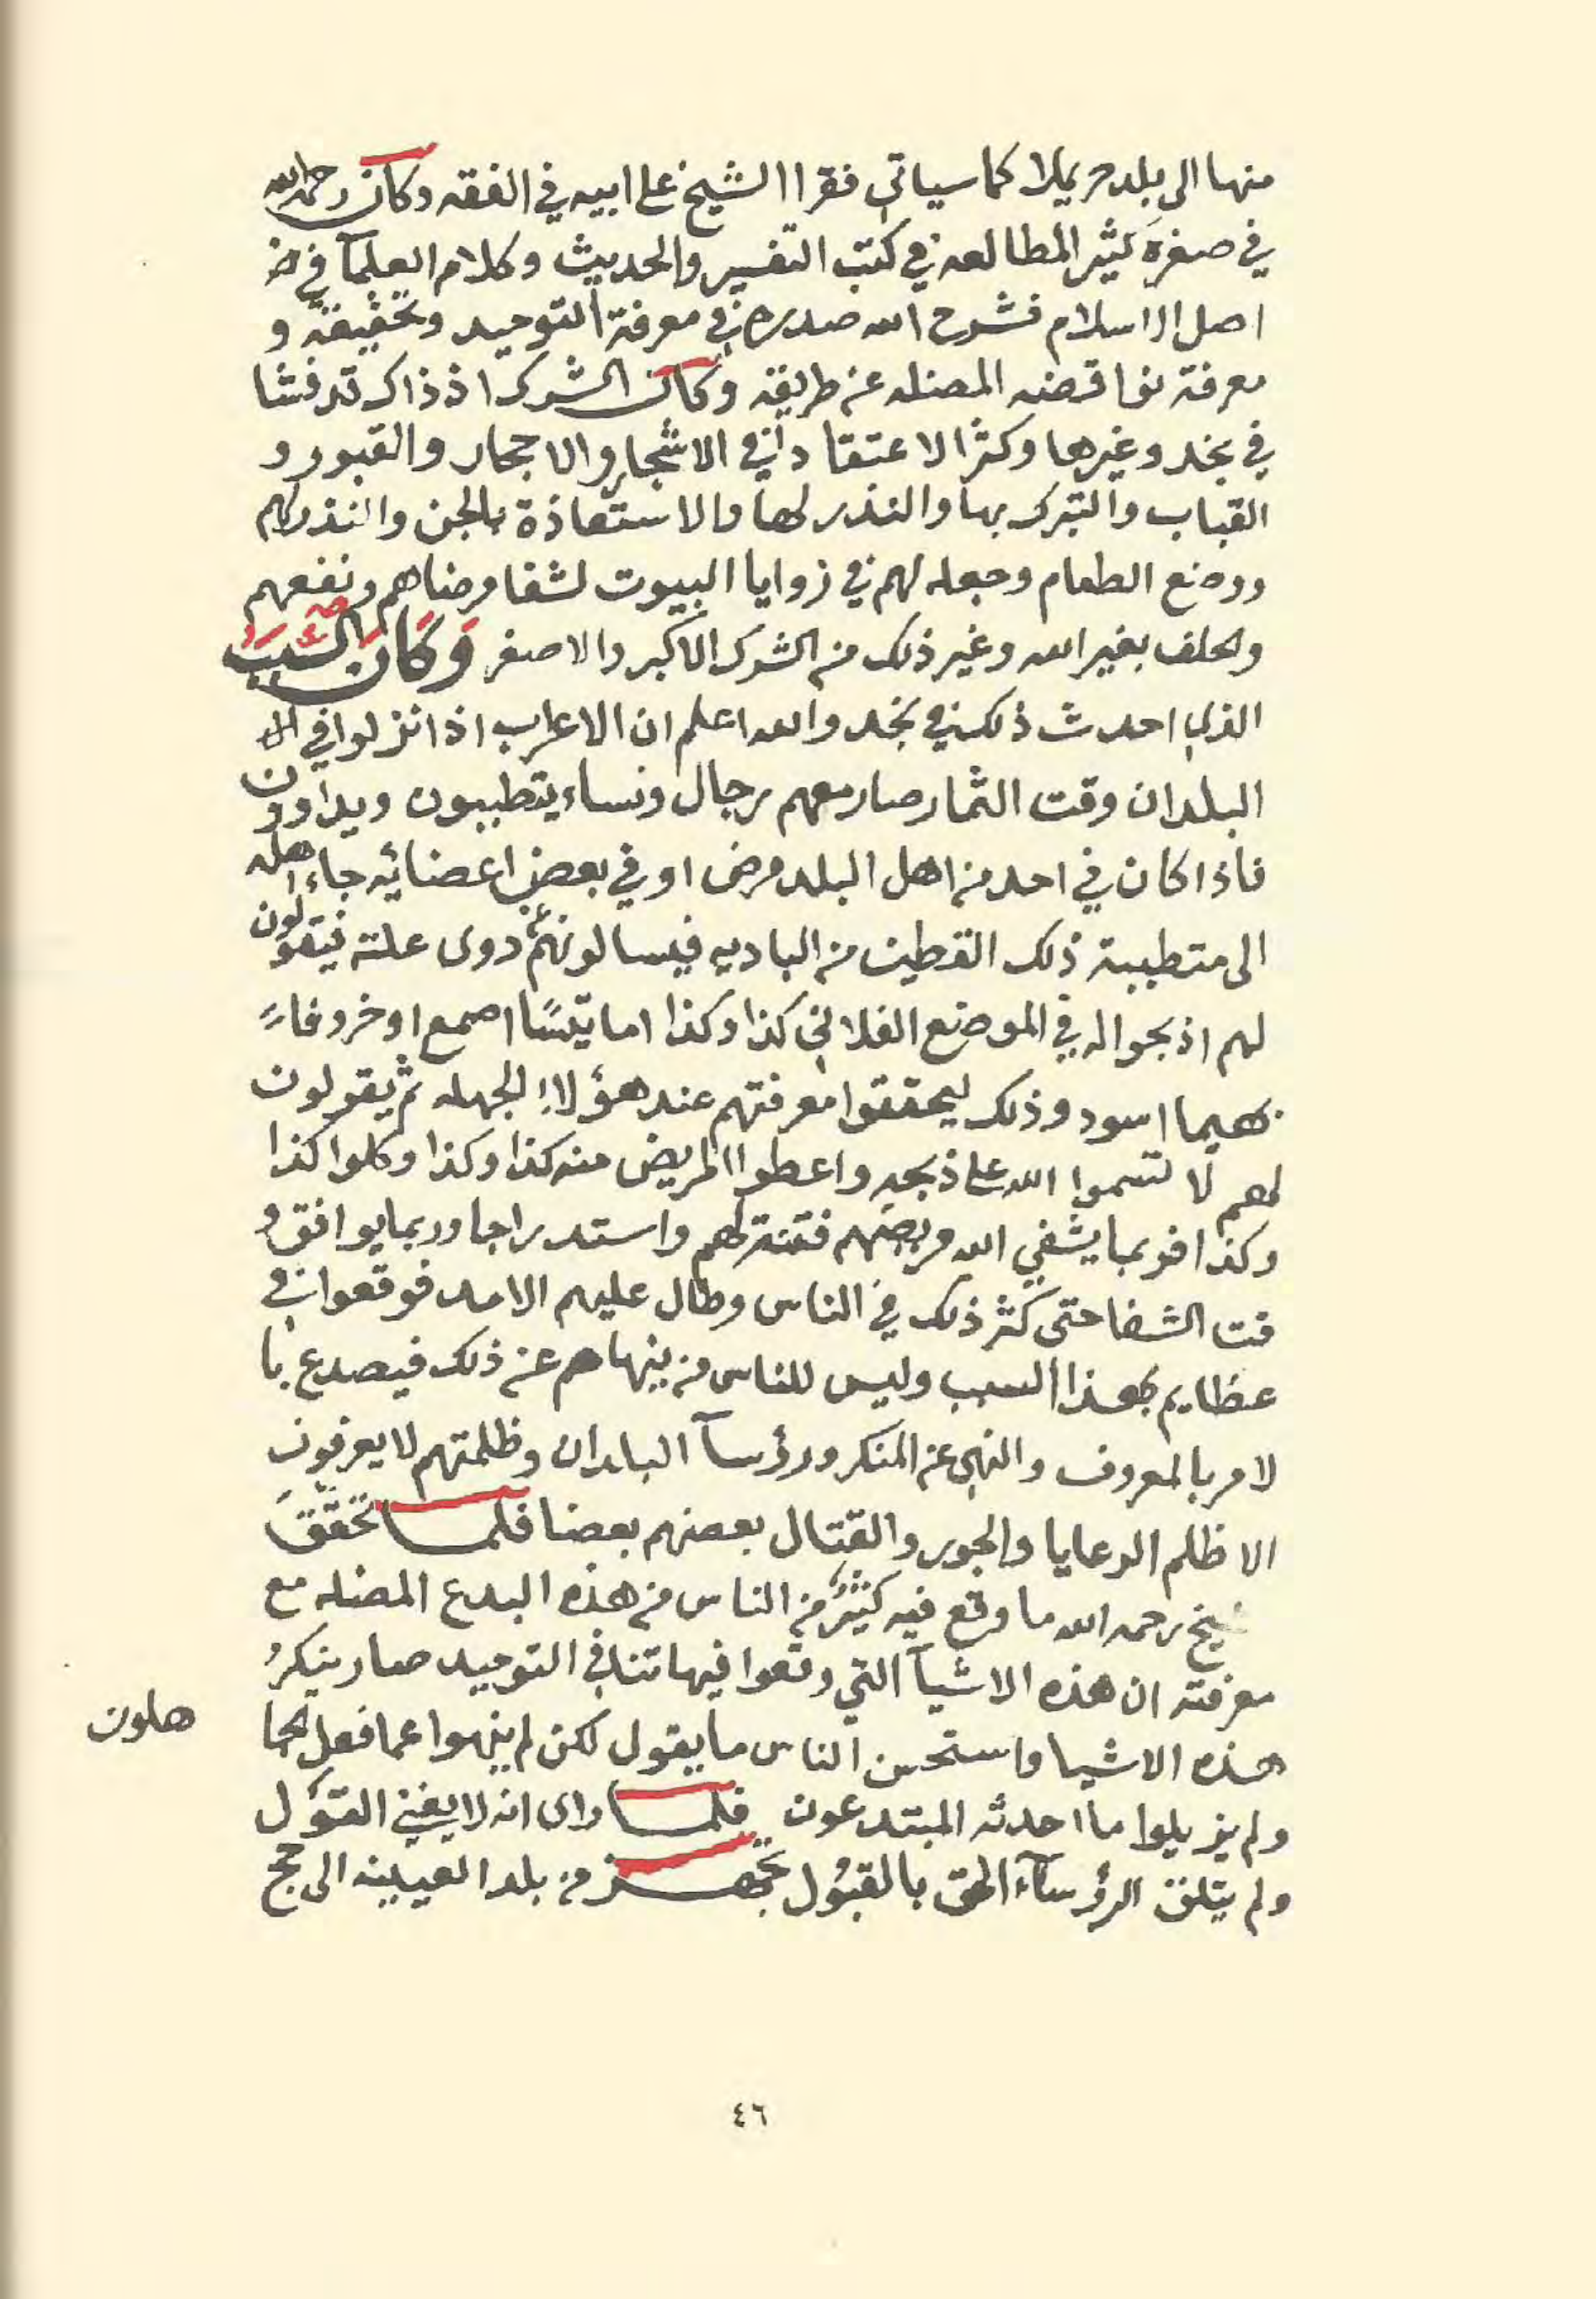 منها الى بلد حريملا كما سياتي فقرا الشيخ على ابيه في الفقه وكان رحمه الله
في صغره كثير المطالعه في كتب التفسير والحديث وكلام العلمآ في
اصل الاسلام فشرح الله صدره في معرفة التوحيد وتحقيقه و
معرفة نواقضه المضله عن طريقه وكان الشرك اذ ذاك قد فشا
في نجد وغيرها وكثر الاعتقاد في الاشجار والاحجار والقبور و
القباب والتبرك بها والنذر لها والاستعاذة بالجن والنذر لهم
ووضع الطعام وجعله لهم في زوايا البيوت لشفا مرضاهم ونفعهم
والحلف بغير الله وغير ذلك من الشرك الاكبر والاصغر وَكَانَ السَّبَبُ
الذي احدث ذلك في نجد والله اعلم ان الاعراب اذا نزلوا في
البلدان وقت الثمار صار معهم رجال ونساء يتطببون ويداوون
فاذا كان في احد من اهل البلد مرض او في بعض اعضائه جاء اهله
الى متطببة ذلك القطين من الباديه فيسالونهم دوى علته فيقولون
لهم اذبحوا له في الموضع الفلاني كذا وكذا اما تيسًا اصمع او خروفاً
بهيما اسود وذلك ليحققوا معرفتهم عند هؤلاء الجهله ثم يقولون
لهم لا تسموا الله على ذبحه واعطوا المريض منه كذا وكذا وكلوا كذا
وكذا فربما يشفي الله مريضهم فتنة لهم واستدراجا وربما يوافق و
قت الشفا حتى كثر ذلك في الناس وطال عليهم الامد فوقعوا في
عظايم بهذا السبب وليس للناس من ينهاهم عن ذلك فيصدع با
لامر بالمعروف والنهي عن المنكر ورؤسآ البلدان وظلمتهم لا يعرفون
الا ظلم الرعايا والجور والقتال بعضهم بعضا فلما تحقق
شيخ رحمه الله ما وقع فيه كثير من الناس من هذه البدع المضله مع
معرفته ان هذه الاشيآ التي وقعوا فيها تنافي التوحيد صار ينكرُ
هذه الاشيا واستحسن الناس ما يقول لكن لم ينهوا عما فعل الجا
هلون
ولم يزيلوا ما احدثه المبتدعون فلما راى انه لا يغني القول
ولم يتلق الرؤسآء الحق بالقبُول تجهز من بلد العيينه الى حج
٤٦